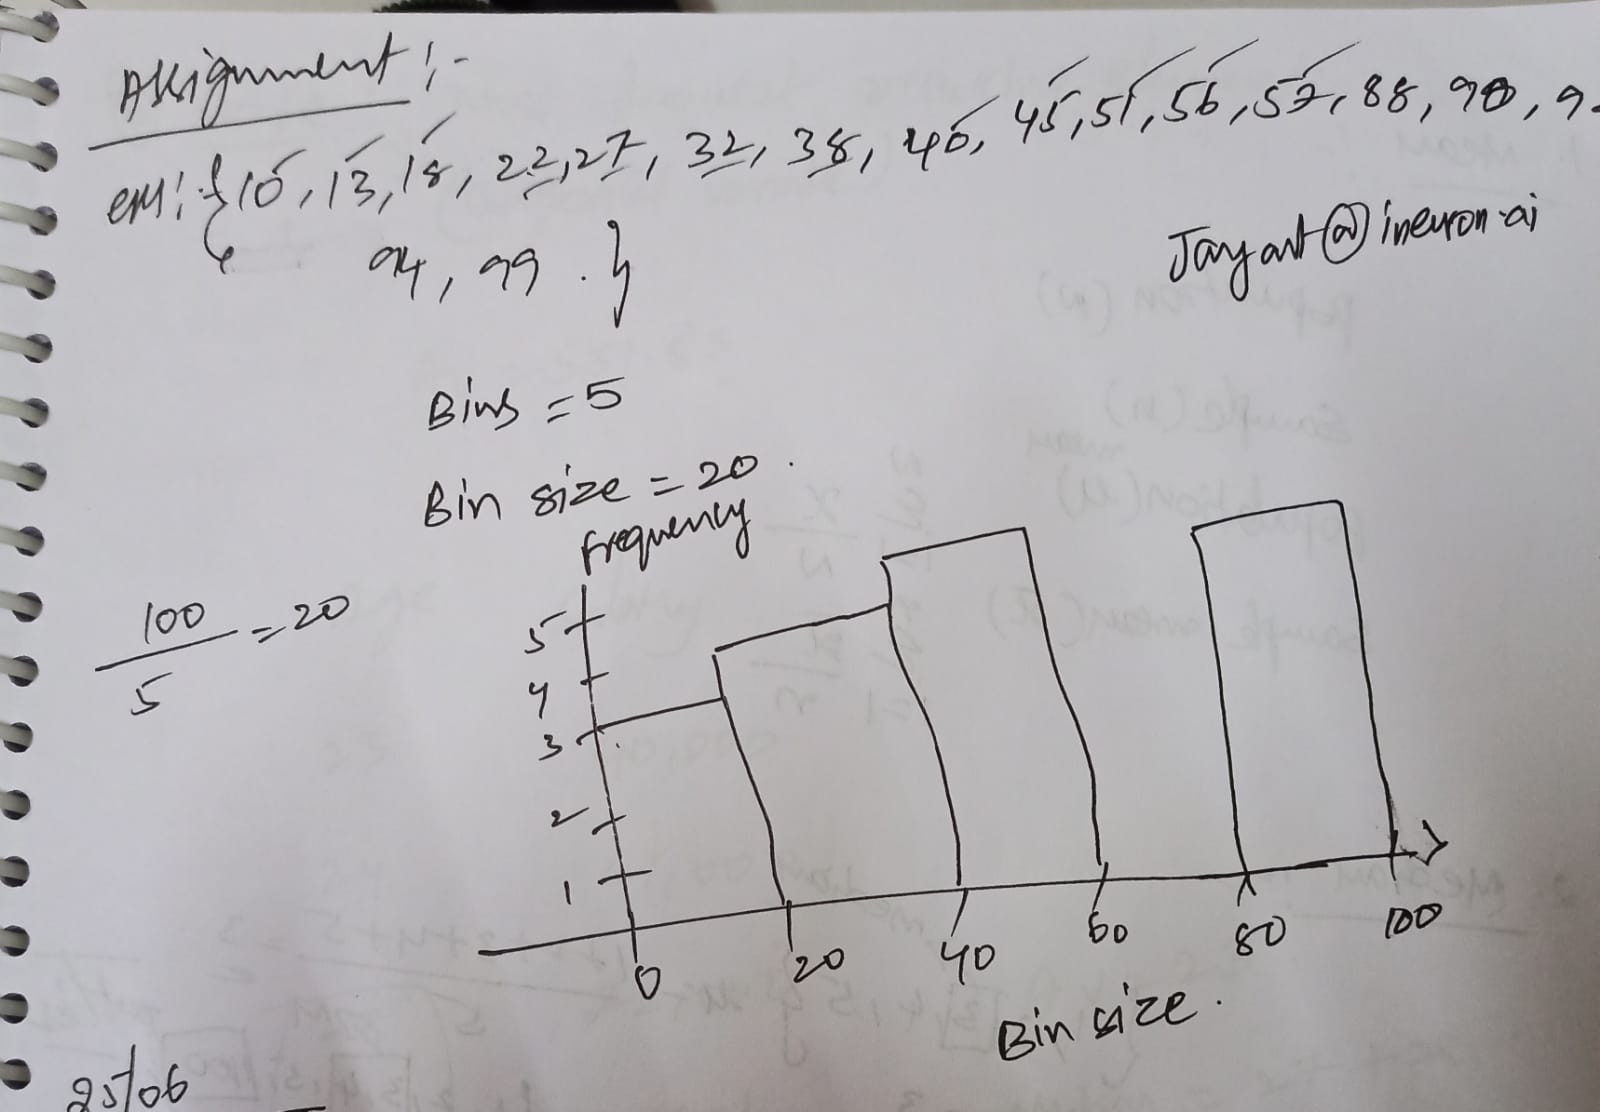 Assignment :-
ex1: { 10, 13, 18, 22, 27, 32, 38, 40, 45, 51, 56, 57, 88, 90, 9
94, 99 . }
Jayant@ineuron.ai
Bins = 5
Bin size = 20 .
100
5
= 20
Frequency
5
4
3
2
1
0 20 40 60 80 100
Bin size .
25/06